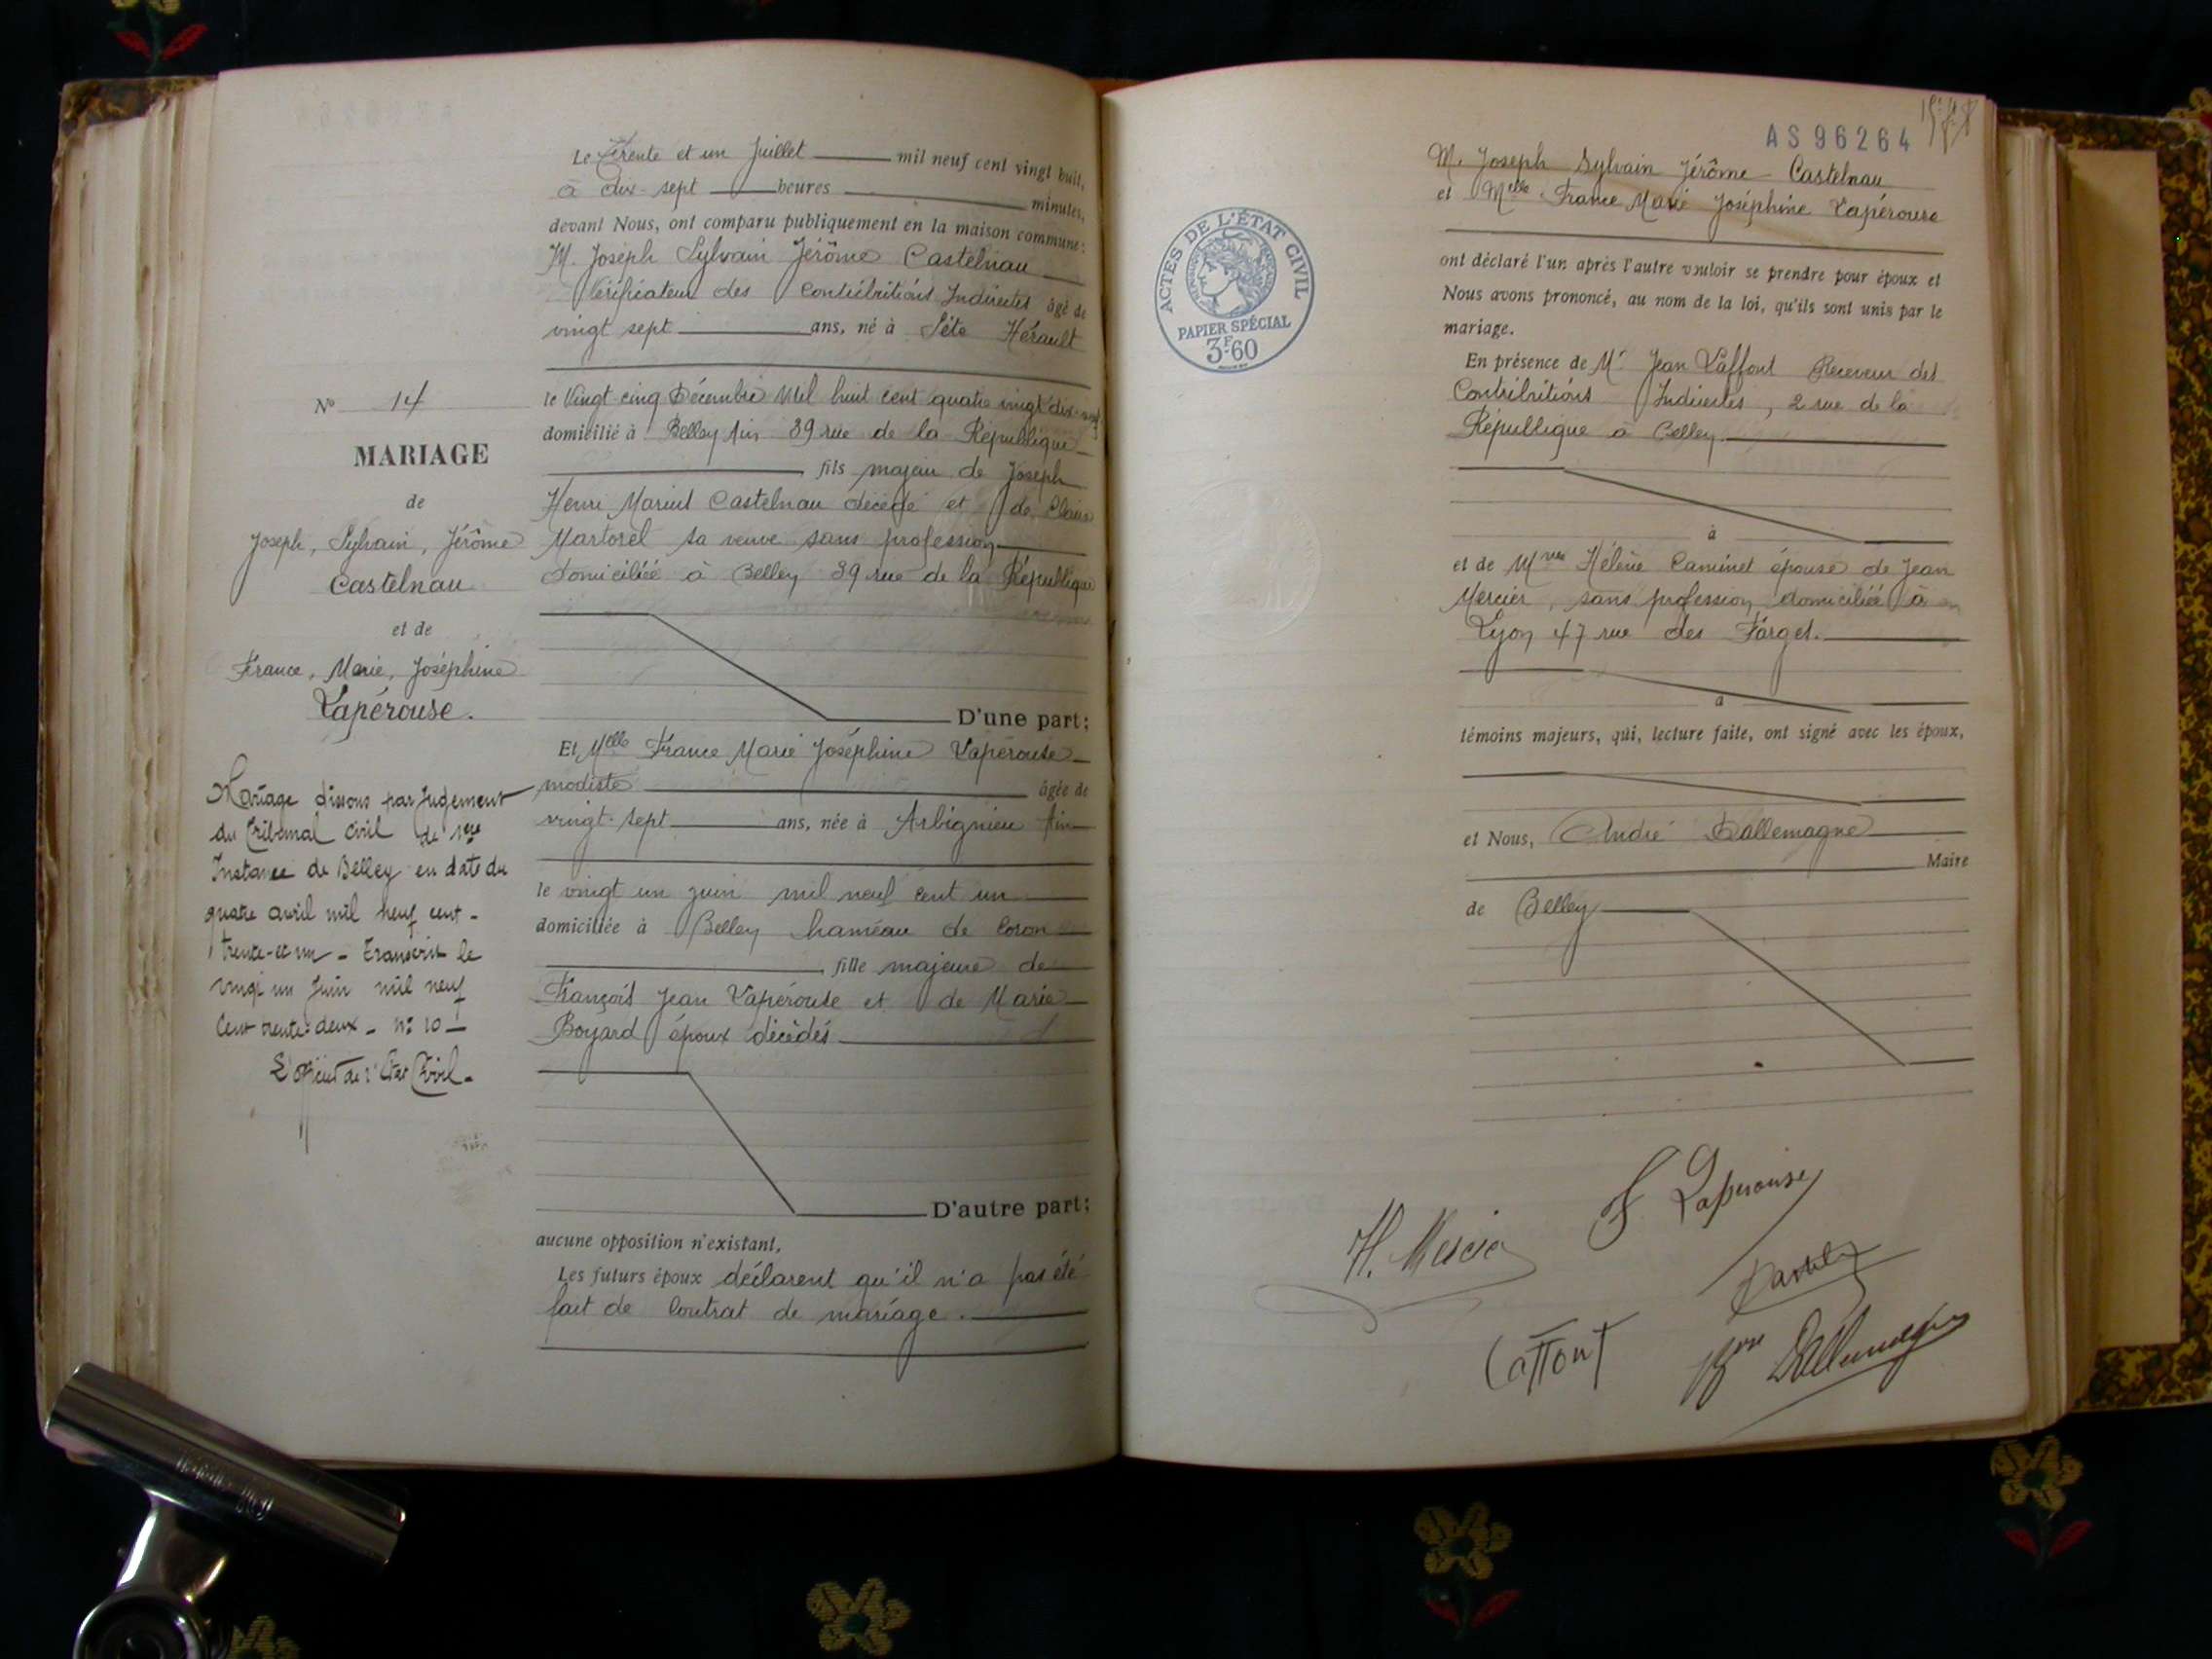 Le Trente et un Juillet mil neuf cent vingt huit,
à dix-sept heures minutes,
devant Nous, ont comparu publiquement en la maison commune :
M. Joseph Sylvain Jérôme Castelnau
Vérificateur des Contributions Indirectes âgé de
vingt sept ans, né à Sète Hérault
le Vingt cinq Décembre Mil huit cent quatre vingt dix-neuf
domicilié à Belley Ain 39 rue de la République
fils majeur de Joseph
Henri Marius Castelnau décédé et de Claire
Martorel sa veuve sans profession
domiciliée à Belley 39 rue de la République
D'une part ;
Et Melle France Marie Joséphine Lapérouse
modiste âgée de
vingt-sept ans, née à Arbignieu Ain
le vingt un juin mil neuf cent un
domiciliée à Belley hameau de Coron
fille majeure de
François Jean Lapérouse et de Marie
Boyard époux décédés
D'autre part ;
aucune opposition n'existant,
Les futurs époux déclarent qu'il n'a pas été
fait de Contrat de mariage.
No 14
MARIAGE
de
Joseph, Sylvain, Jérôme
Castelnau
et de
France, Marie, Joséphine
Lapérouse.
Mariage dissous par Jugement
du Tribunal Civil de 1ere
Instance de Belley en date du
quatre avril mil neuf cent-
trente-et un - Transcrit le
vingt un Juin mil neuf
Cent trente-deux - No 10 -
L'officier de l'Etat Civil.
AS 96264
M. Joseph Sylvain Jérôme Castelnau
et Melle France Marie Joséphine Lapérouse
ACTES DE L'ÉTAT CIVIL
PAPIER SPÉCIAL
3F60
ont déclaré l'un après l'autre vouloir se prendre pour époux et
Nous avons prononcé, au nom de la loi, qu'ils sont unis par le
mariage.
En présence de Mr Jean Laffont Receveur des
Contributions Indirectes, 2 rue de la
République à Belley
à
et de Mme Hélène Caminet épouse de Jean
Mercier, sans profession domiciliée à
Lyon 47 rue des Farges.
à
témoins majeurs, qui, lecture faite, ont signé avec les époux,
et Nous, André Dallemagne
Maire
de Belley
F Lapérouse
H. Mercier
Laffont
Dallemagne